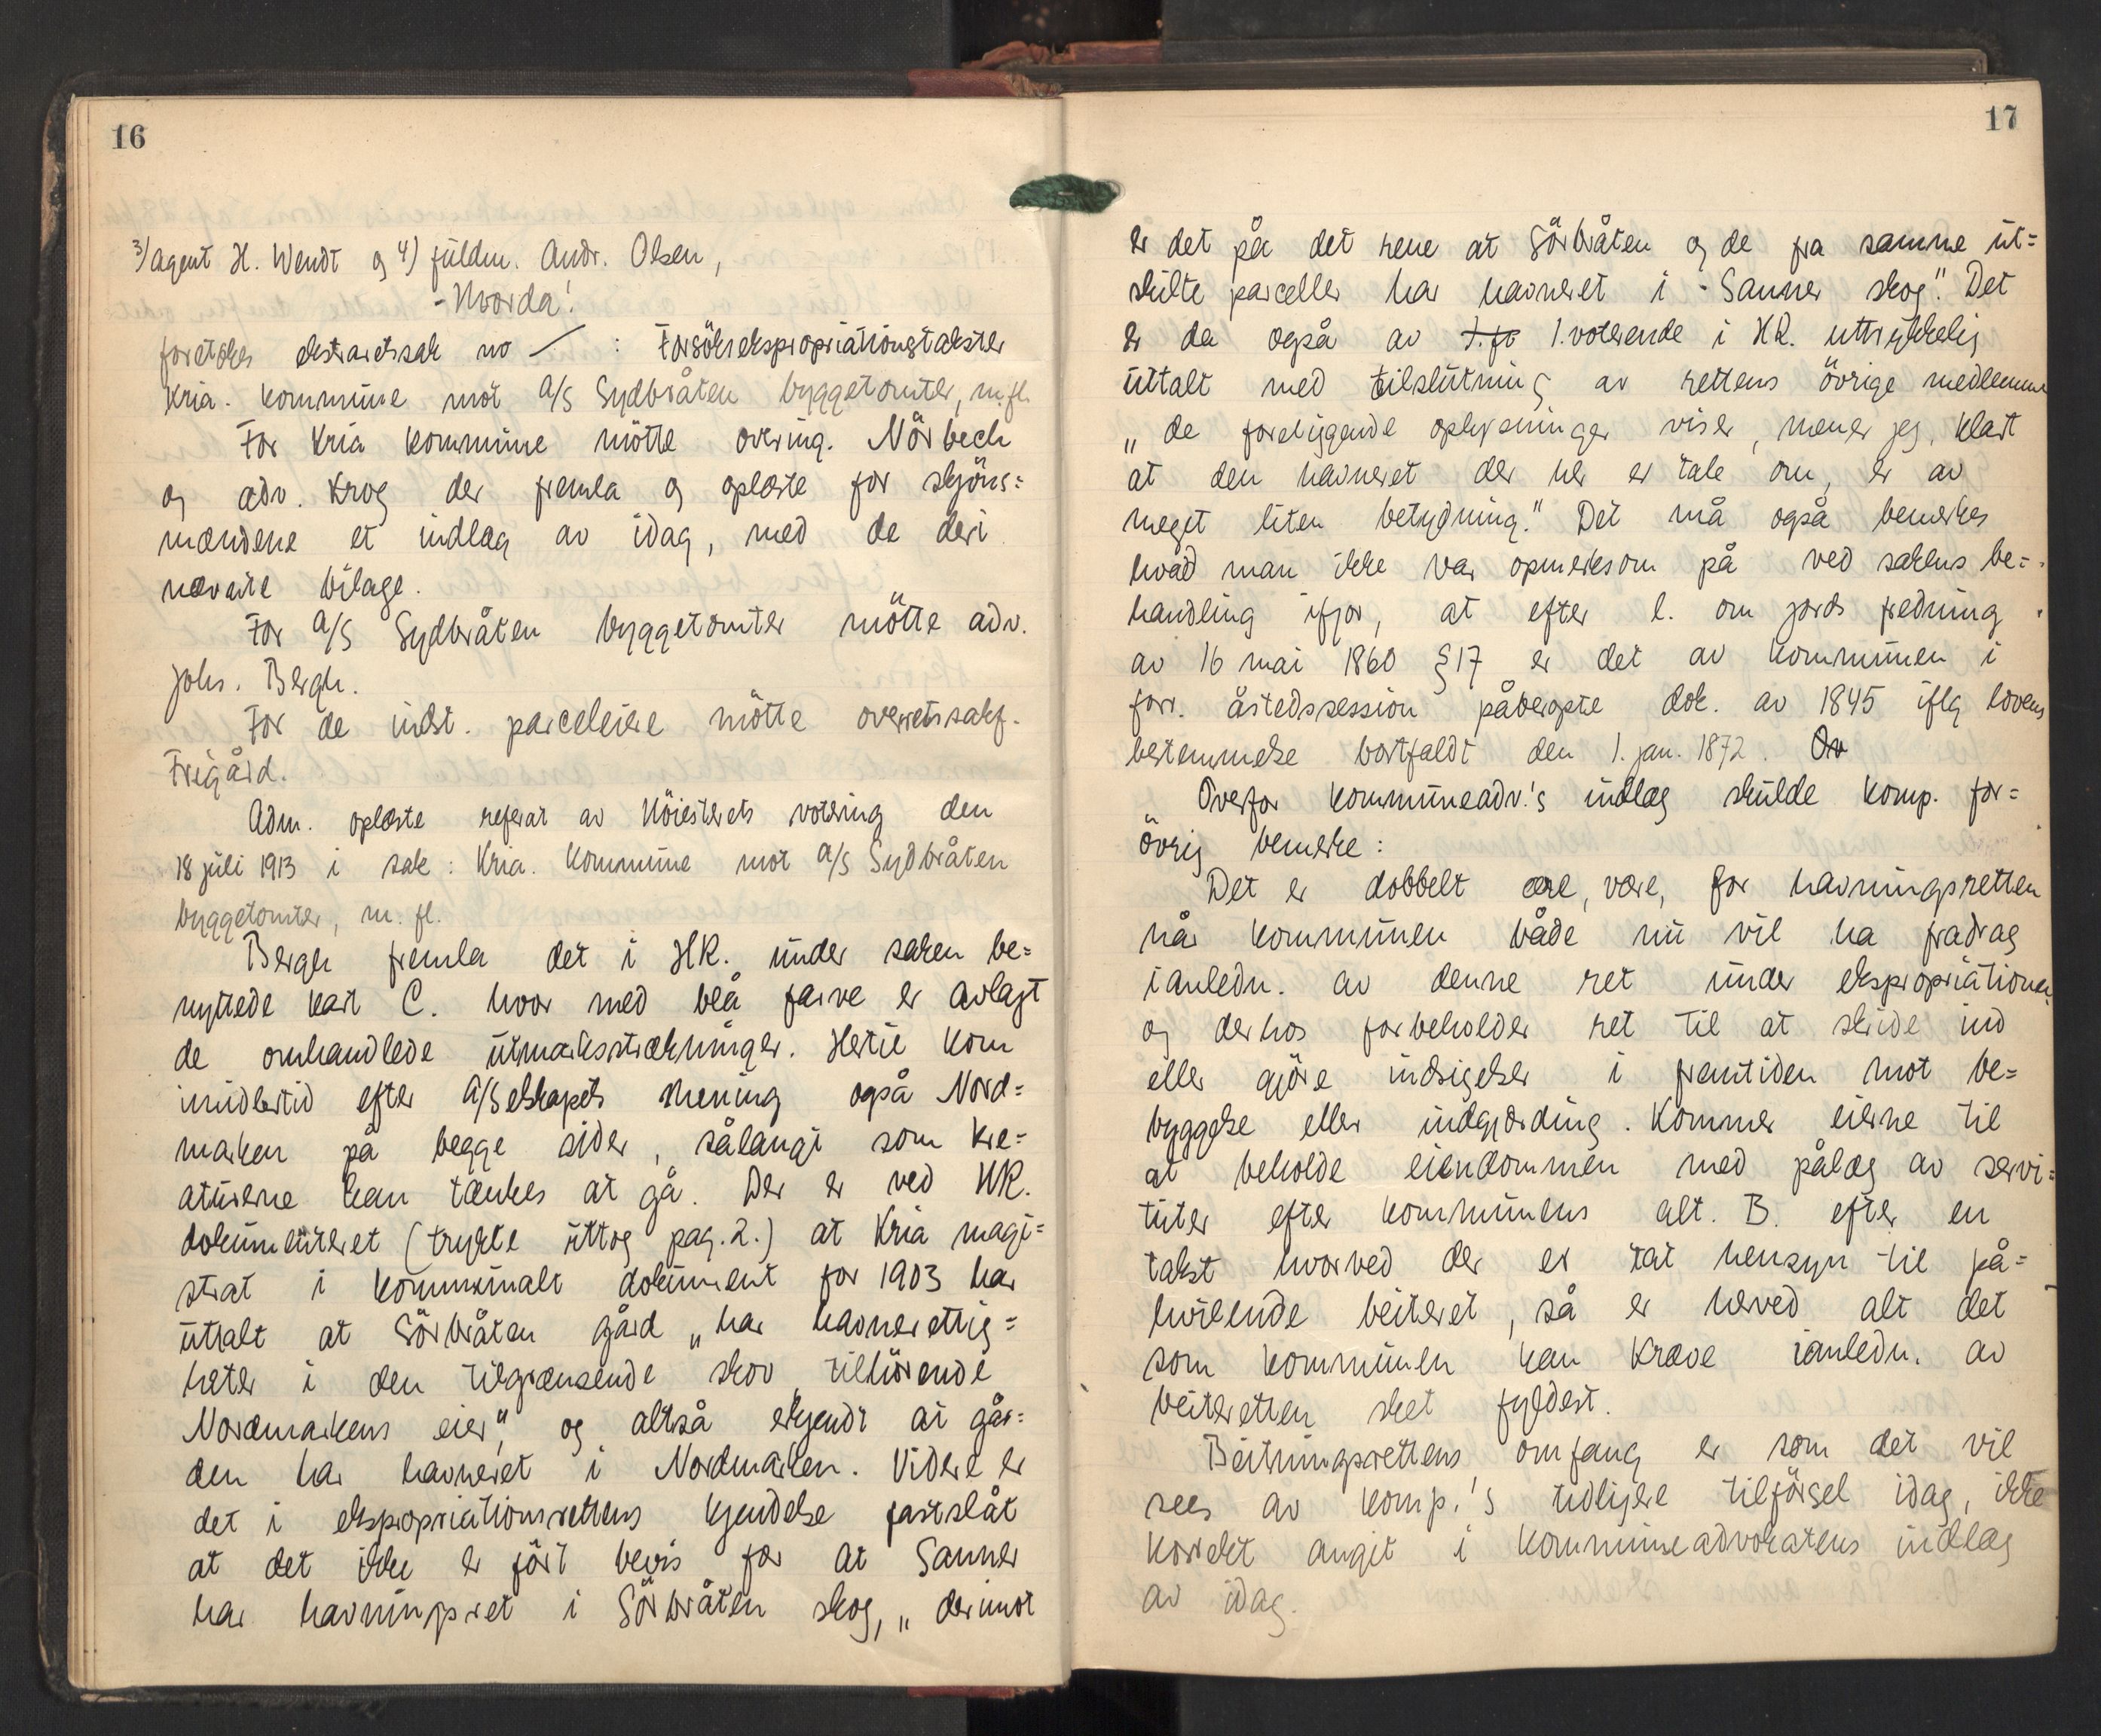 16
3/ agent H. Wendt og 4) fuldm. Andr. Olsen,
- Hvorda!
foretokes ekstraretssak no — : Forsøksekspropriationstakster
Kria. kommune mot A/S Sydbråten byggetomter, m.fl.
For Kria kommune møtte overing. Nørbech
og adv. Krog der fremla og oplæste for skjøns=
mændene et indlæg av idag, med de deri
nævnte bilage.
For A/S Sydbråten byggetomter møtte adv.
Johs. Bergh.
For de indst. parceleiere møtte overretssakf.
Frigård.
Adm. oplæste referat av Høiesterets votering den
18 juli 1913 i sak: Kria. kommune mot A/S Sydbråten
byggetomter, m. fl.
Bergh fremla det i HR. under saken be=
nyttede kart C. hvor med blå farve er avlagt
de omhandlede utmarksstrækninger. Hertil kom
imidlertid efter A/Selskapets mening også Nord=
marken på begge sider, sålangt som kre=
aturerne kan tænkes at gå. Der er ved HR.
dokumenteret (trykte uttog pag. 2.) at Kria magi=
strat i kommunalt dokument for 1903 har
uttalt at Sørbråten gård „har havnerettig=
heter i den tilgrænsende skov tilhørende
Nordmarkens eier," og altså erkjendt at går=
den har havneret i Nordmarken. Videre er
det i ekspropriationsrettens kjendelse fastslåt
at det ikke er ført bevis for at Sanner
har havningsret i Sørbråten skog, „derimot
17
er det på det rene at Sørbråten og de fra samme ut=
skilte parceller har havneret i - Sanner skog". Det
er da også av 1. voterende i HR. uttrykkelig
uttalt med tilslutning av rettens øvrige medlemmer
„de foreliggende oplysninger viser, mener jeg, klart
at den havneret der her er tale om, er av
meget liten betydning." Det må også bemerkes
hvad man ikke var opmerksom på ved sakens be=
handling ifjor, at efter l. om jords fredning
av 16 mai 1860 § 17 er det av kommunen i
forr. åstedssession påberopte dok. av 1845 iflg lovens
bestemmelse bortfaldt den 1. jan. 1872. Ov
Overfor kommuneadv.'s indlæg skulde komp. for=
øvrig bemerke:
Det er dobbelt ære, være, for havningsretten
når kommunen både nu vil ha fradrag
ianledn. av denne ret under ekspropriationen
og derhos forbeholder ret til at skride ind
eller gjøre indsigelser i fremtiden mot be=
byggelse eller indgjærding. Kommer eierne til
at beholde eiendommen med pålæg av servi=
tuter efter kommunens alt. B. efter en
takst hvorved der er tat hensyn til på=
hvilende beiteret, så er herved alt det
som kommunen kan kræve ianledn. av
beiteretten sket fyldest.
Beitningsrettens omfang er som det vil
sees av komp.'s tidligere tilførsel idag, ikke
korrekt angit i kommuneadvokatens indlæg
av idag.